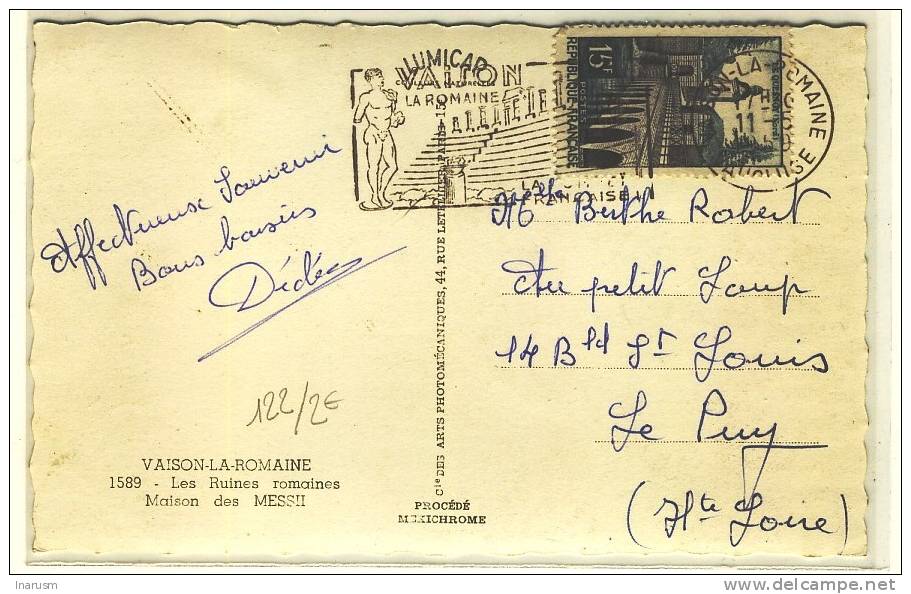 LUMICAP
VAISON
LA ROMAINE
15F
REPUBLIQUE FRANÇAISE
POSTES
LA ROMAINE
17H
11
VAUCLUSE
FRANÇAISE
Affectueux Souvenir
Bons baisers
Dédée
Melle Berthe Robert
Au petit Loup
14 Bld St Louis
Le Puy
(Hte Loire)
122/2€
VAISON-LA-ROMAINE
1589 - Les Ruines romaines
Maison des MESSII
Cie DES ARTS PHOTOMÉCANIQUES, 44, RUE LETELLIER, PARIS-15e
PROCÉDÉ
MEXICHROME
Inarusm
delcampe.net